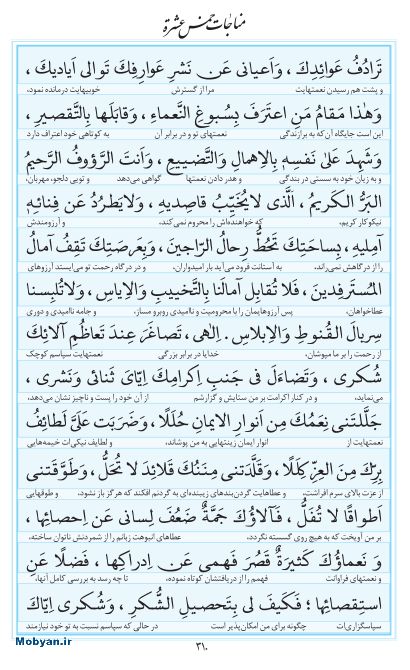 مناجات خمس عشرة
تَرَادُفُ عَوائِدِكَ ، وَاَعيانى عَن نَشرِ عَوارِفِكَ تَوالى اَياديكَ ،
و پشت هم رسیدن نعمتهایت مرا از گسترش خوبیهایت درمانده نمود،
وَهٰذا مَقامُ مَنِ اعتَرَفَ بِسُبوغِ النَّعماءِ ، وَقابَلَها بِالتَّقصيرِ ،
این است جایگاه آن‌که به برازندگی نعمتهای تو و در برابر آن به کوتاهی خود اعتراف دارد
وَشَهِدَ عَلىٰ نَفسِهِ بِالاِهمالِ وَالتَّضييعِ ، وَاَنتَ الرَّؤوفُ الرَّحيمُ
و به زیان خود به سستی در بندگی و هدر دادن نعمتها گواهی می‌دهد و تویی دلجو، مهربان،
البَرُّ الكَريمُ ، الَّذى لايُخَيِّبُ قاصِديهِ ، وَلايَطرُدُ عَن فِنائِهِ
نیکوکار کریم، که خواهنده‌اش را محروم نمی‌کند. و آرزومندش
آمِليهِ ، بِساحَتِكَ تَحُطُّ رِحالُ الرّاجينَ ، وَبِعَرصَتِكَ تَقِفُ آمالُ
را از درگاهش نمی‌راند، به آستانت فرود می‌آید بار امیدواران، و در درگاه رحمت تو می‌ایستد آرزوهای
المُستَرفِدينَ ، فَلا تُقابِل آمالَنا بِالتَّخييبِ وَالاِياسِ ، وَلاتُلبِسنا
عطاخواهان، پس آرزوهایمان را با محرومیت و ناامیدی روبرو مساز، و جامه ناامیدی و دوری
سِربالَ القُنوطِ وَالاِبلاسِ. اِلٰهى ، تَصاغَرَ عِندَ تَعاظُمِ آلائِكَ
از رحمت را بر ما مپوشان، خدایا در برابر بزرگی نعمتهایت سپاسم کوچک
شُكرى ، وَتَضاءَلَ فى جَنبِ اِكرامِكَ اِيّاىَ ثَنائى وَنَشرى ،
می‌نماید، و در کنار اکرامت بر من ستایش و گزارشم از آن خود را پست و ناچیز نشان می‌دهد،
جَلَّلَتنى نِعَمُكَ مِن اَنوارِ الايمانِ حُلَلًا ، وَضَرَبَت عَلَىَّ لَطائِفُ
نعمتهایت از انوار ایمان زینتهایی به من پوشاند، و لطایف نیکی‌ات خیمه‌هایی
بِرِّكَ مِنَ العِزِّ كِلَلًا ، وَقَلَّدَتنى مِنَنُكَ قَلائِدَ لا تُحَلُّ ، وَطَوَّقَتنى
از عزت بالای سرم افراشت، و عطاهایت گردن‌بندهای زیبنده‌ای به گردنم افکند که هرگز باز نشود، و طوقهایی
اَطواقًا لا تُفَلُّ ، فَـآلاؤُكَ جَمَّةٌ ضَعُفَ لِسانى عَن اِحصائِها ،
بر من آویخت که به هیچ روی گسسته نگردد، عطاهای انبوهت زبانم را از شمردنش ناتوان ساخته،
وَ نَعماؤُكَ كَثيرَةٌ قَصُرَ فَهمى عَن اِدراكِها ، فَضلًا عَنِ
و نعمتهای فراوانت فهمم را از دریافتشان کوتاه نموده، تا چه رسد به بررسی کامل آنها،
استِقصائِها ؛ فَكَيفَ لى بِتَحصيلِ الشُّكرِ ، وَشُكرى اِيّاكَ
سپاسگزاری‌ات چگونه برای من امکان‌پذیر است در حالی که سپاسم نسبت به تو خود نیازمند
٣١٠
Mobyan.ir